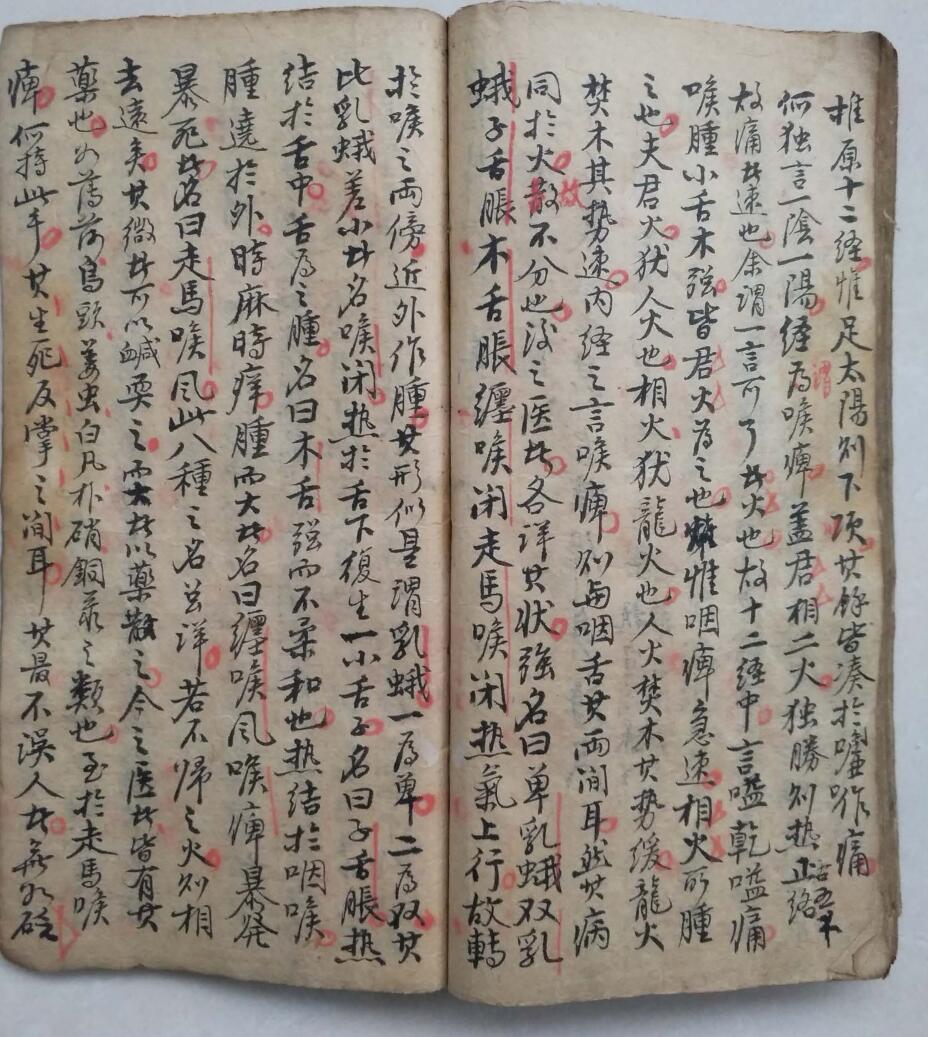 推原十二経惟足太陽別下項其餘皆凑於嚨嗌作痛
何独言一陰一陽経為喉痺盖君相二火独勝則热正絡
故痛此速也余謂一言可了此火也故十二経中言嗌乾嗌痛
喉腫小舌木强皆君火為之也惟咽痺急速相火所腫
之也夫君火犹人火也相火犹龍火也人火焚木其势缓龍火
焚木其势速内経之言喉痺則与咽舌其两间耳然其病
同於火故不分也後之医此各详其状强名曰单乳蛾双乳
蛾子舌胀木舌胀纏喉闭走馬喉闭热氣上行故轉
於喉之両傍近外作腫其形似是謂乳蛾一為单二為双其
比乳蛾差小此名喉闭热於舌下復生一小舌子名曰子舌胀热
结於舌中舌為之腫名曰木舌强而不柔和也热结於咽喉
腫遶於外時麻時痒腫而大此名曰纏喉风喉痺暴発
暴死此名曰走馬喉风此八種之名並详若不帰之火則相
去遠矣其微此可以鹹耎之而大此以藥散之今之医此皆有其
藥也如薄荷烏頭姜虫白凡朴硝銅录之類也至於走馬喉
痺何持此乎其生死反掌之间耳其最不误人此無如砭